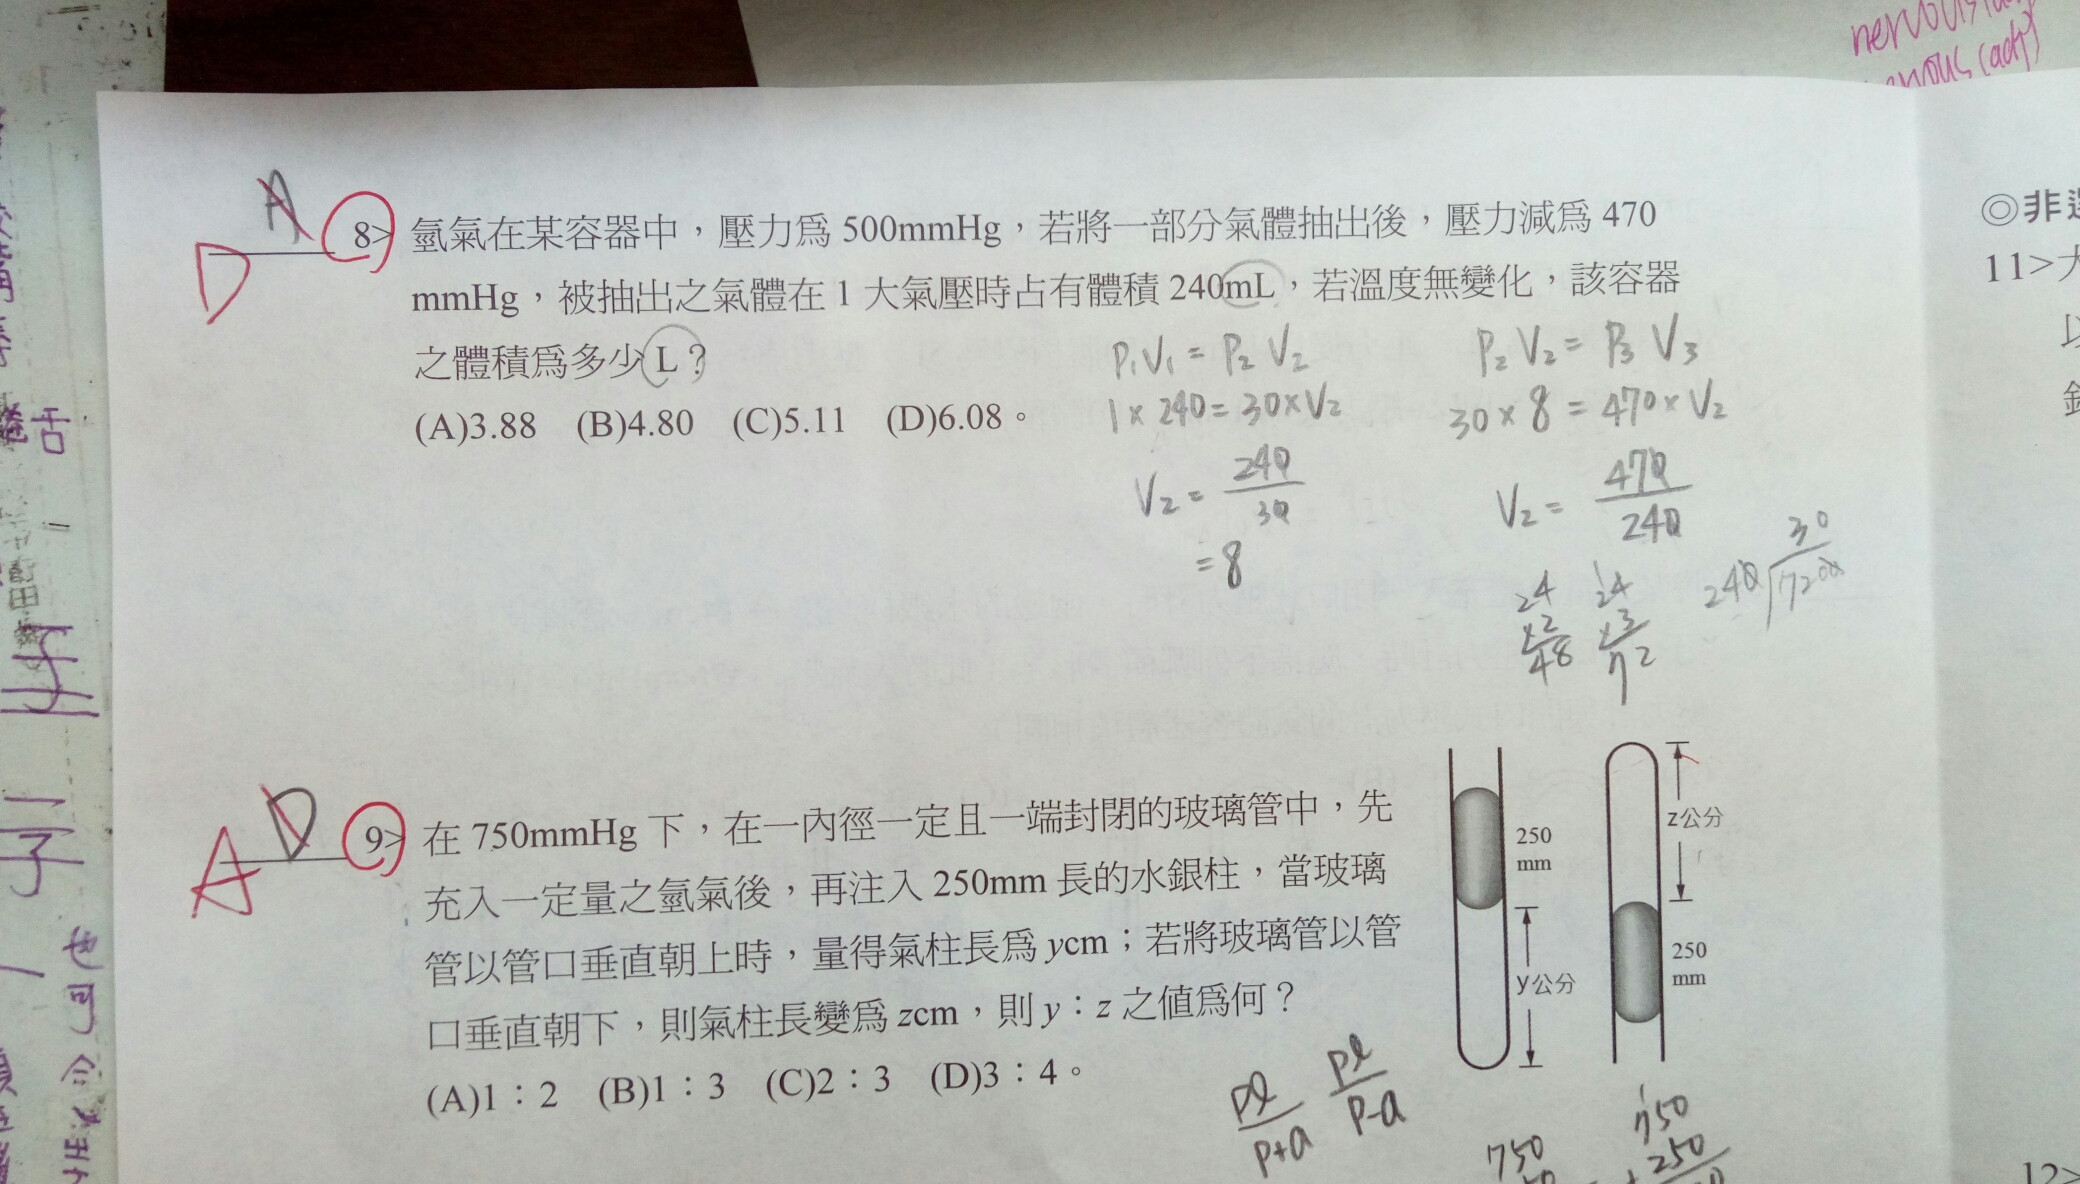 nervous
nervous (adj)
A
D
8> 氫氣在某容器中，壓力為 500mmHg，若將一部分氣體抽出後，壓力減為 470
mmHg，被抽出之氣體在 1 大氣壓時占有體積 240mL，若溫度無變化，該容器
之體積為多少 L？
(A)3.88 (B)4.80 (C)5.11 (D)6.08。
P₁V₁ = P₂V₂
1 × 240 = 30 × V₂
V₂ = 240/30
= 8
P₂V₂ = P₃V₃
30 × 8 = 470 × V₂
V₂ = 470/240
24
×2
48
24
×3
72
30
240
7200
D
A
9> 在 750mmHg 下，在一內徑一定且一端封閉的玻璃管中，先
充入一定量之氫氣後，再注入 250mm 長的水銀柱，當玻璃
管以管口垂直朝上時，量得氣柱長為 ycm；若將玻璃管以管
口垂直朝下，則氣柱長變為 zcm，則 y：z 之值為何？
(A)1：2 (B)1：3 (C)2：3 (D)3：4。
250
mm
y公分
z公分
250
mm
Pl/P+a
Pl/P-a
750
750
+250
◎非
11>
以
12>
舌
也可